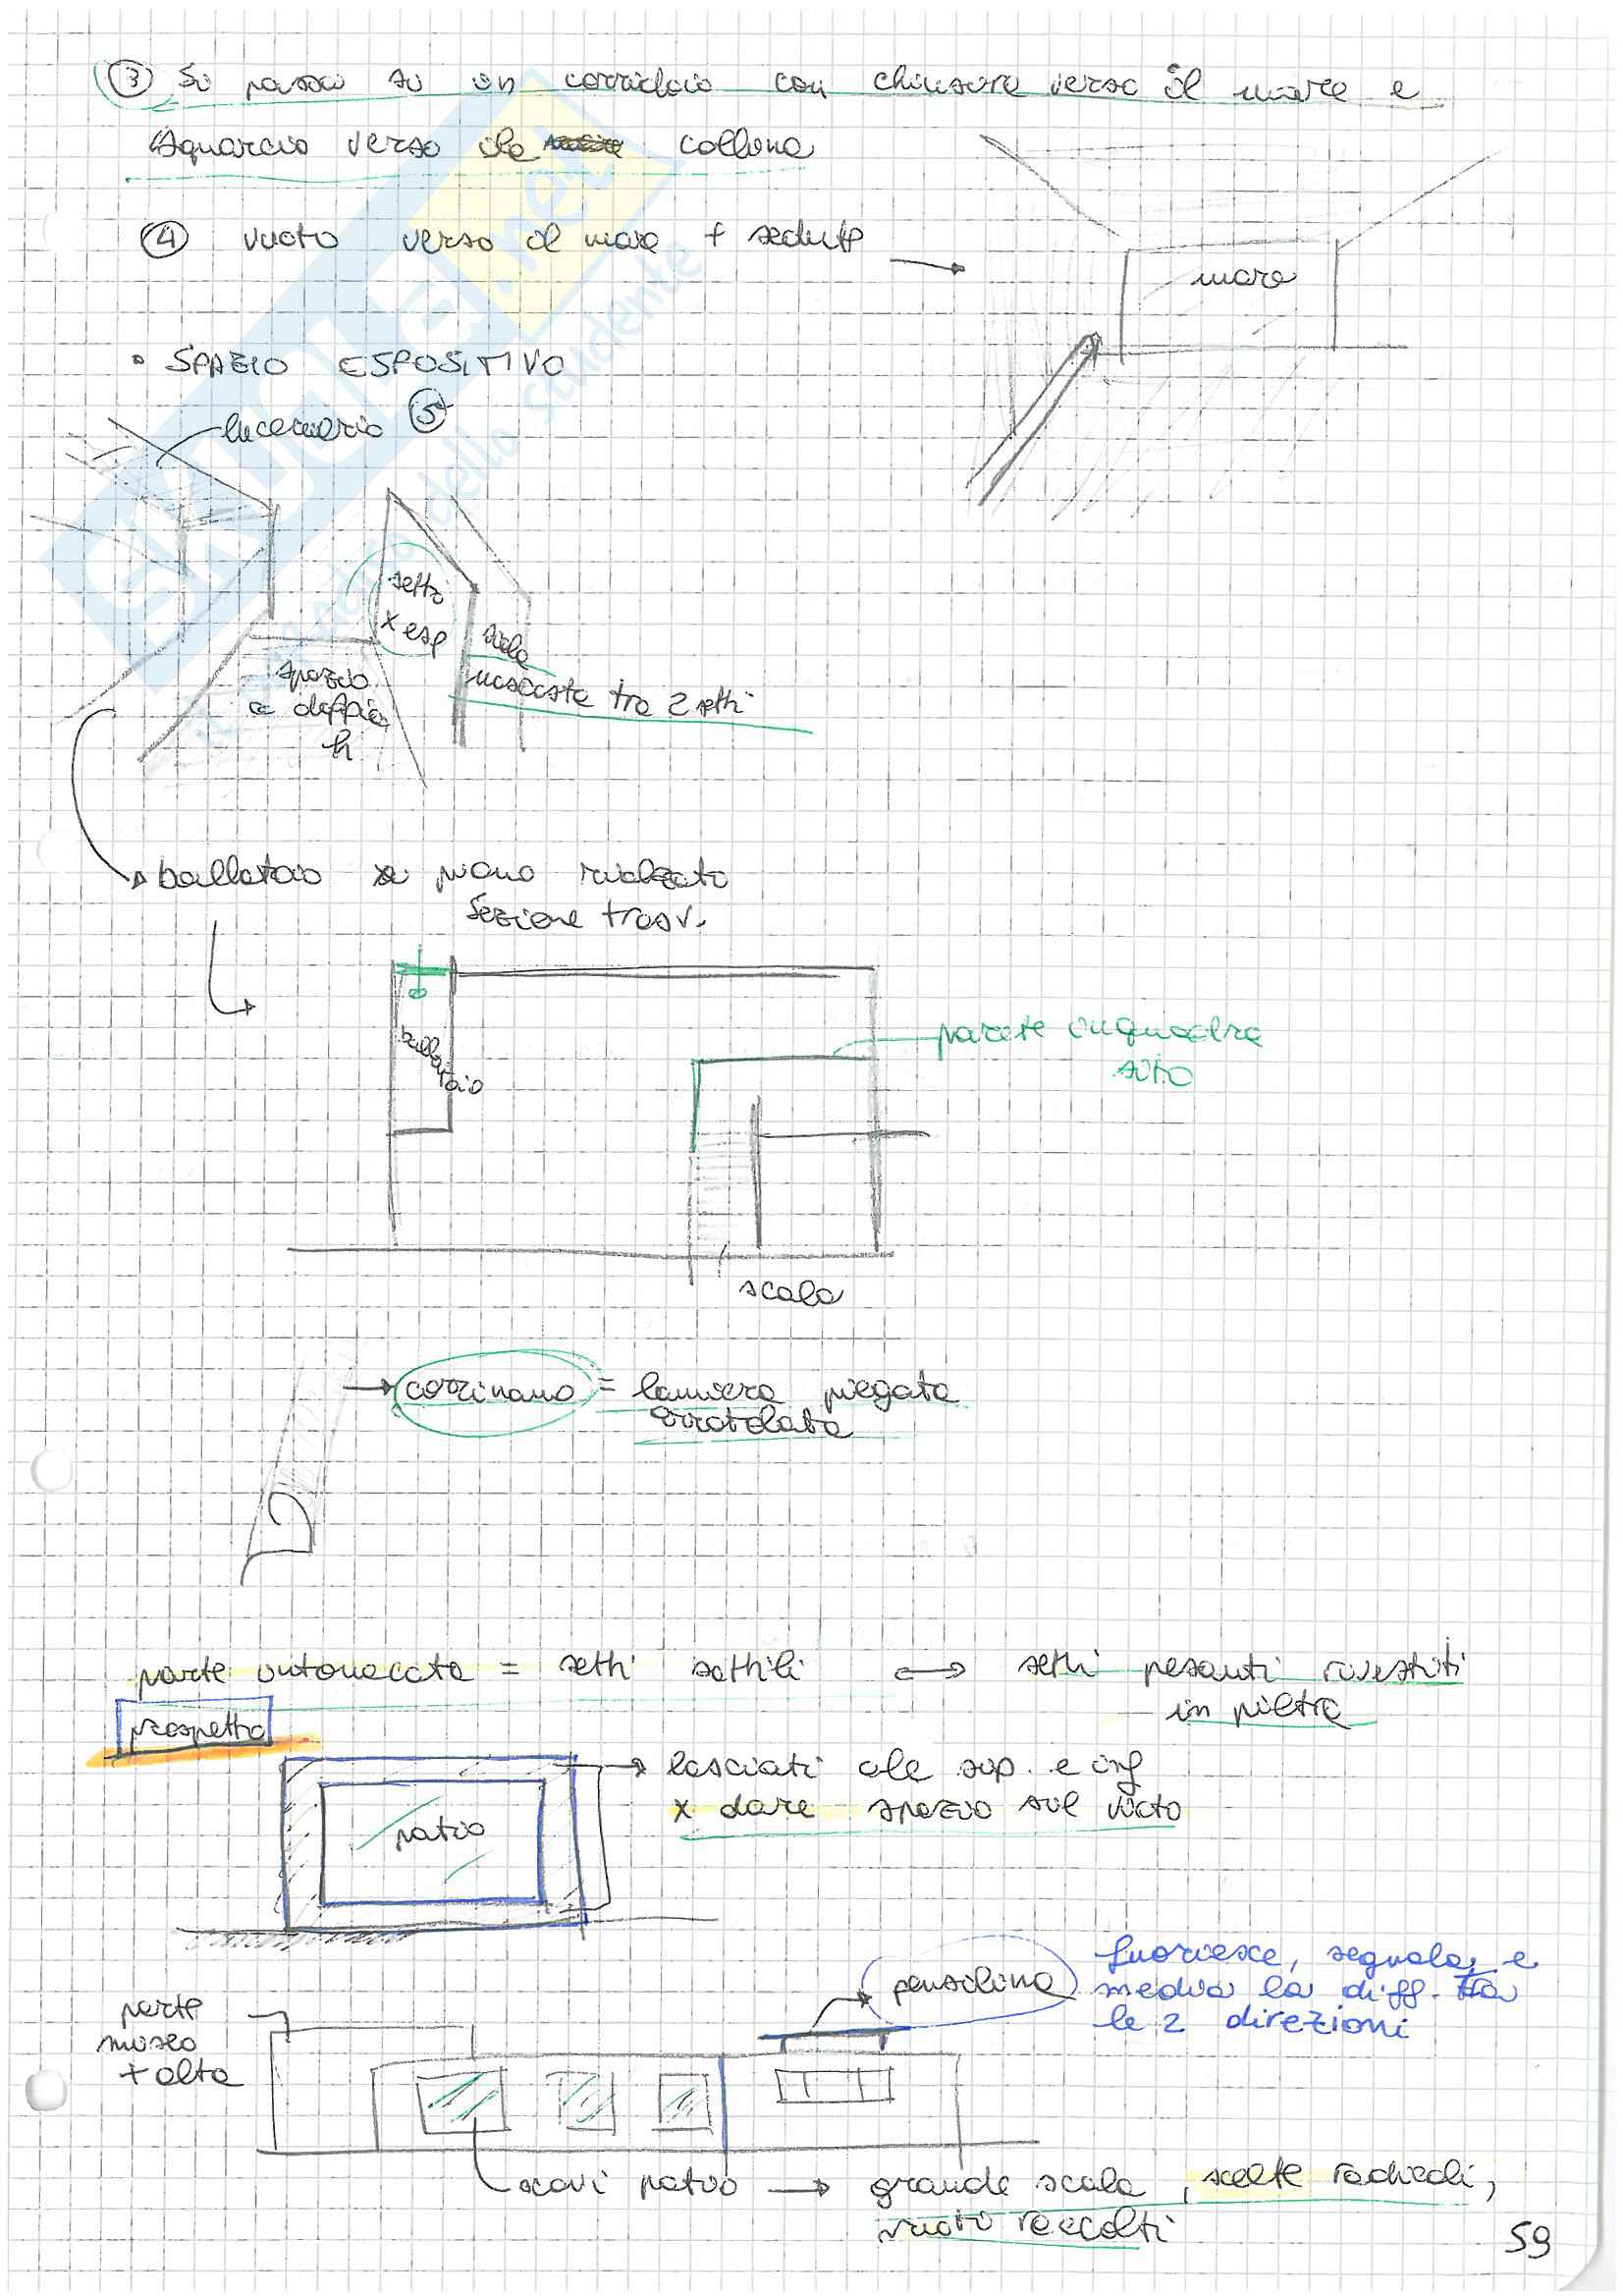 ③ Si passa su un corridoio con chiusure verso il mare e
squarcio verso la collina
④ vuoto verso il mare + sedute
mare
• SPAZIO ESPOSITIVO
lucernario ⑤
setti
x esp
scala
nascosta tra 2 setti
spazio
a doppia
h
ballatoio a piano rialzato
sezione trasv.
ballatoio
parete inquadra
sito
scala
corrimano = lamiera piegata
arrotolata
parte intonacata = setti sottili ↔ setti pesanti rivestiti
in pietra
prospetto
lasciati ale sup. e inf
x dare spazio sul vuoto
patio
pensilina
fuoriesce, segnala, e
media la diff. tra
le 2 direzioni
parte
museo
+ alta
scavi patio → grande scala, scelte radicali,
vuoti raccolti
59
SKUOLA.net
il paradiso dello studente